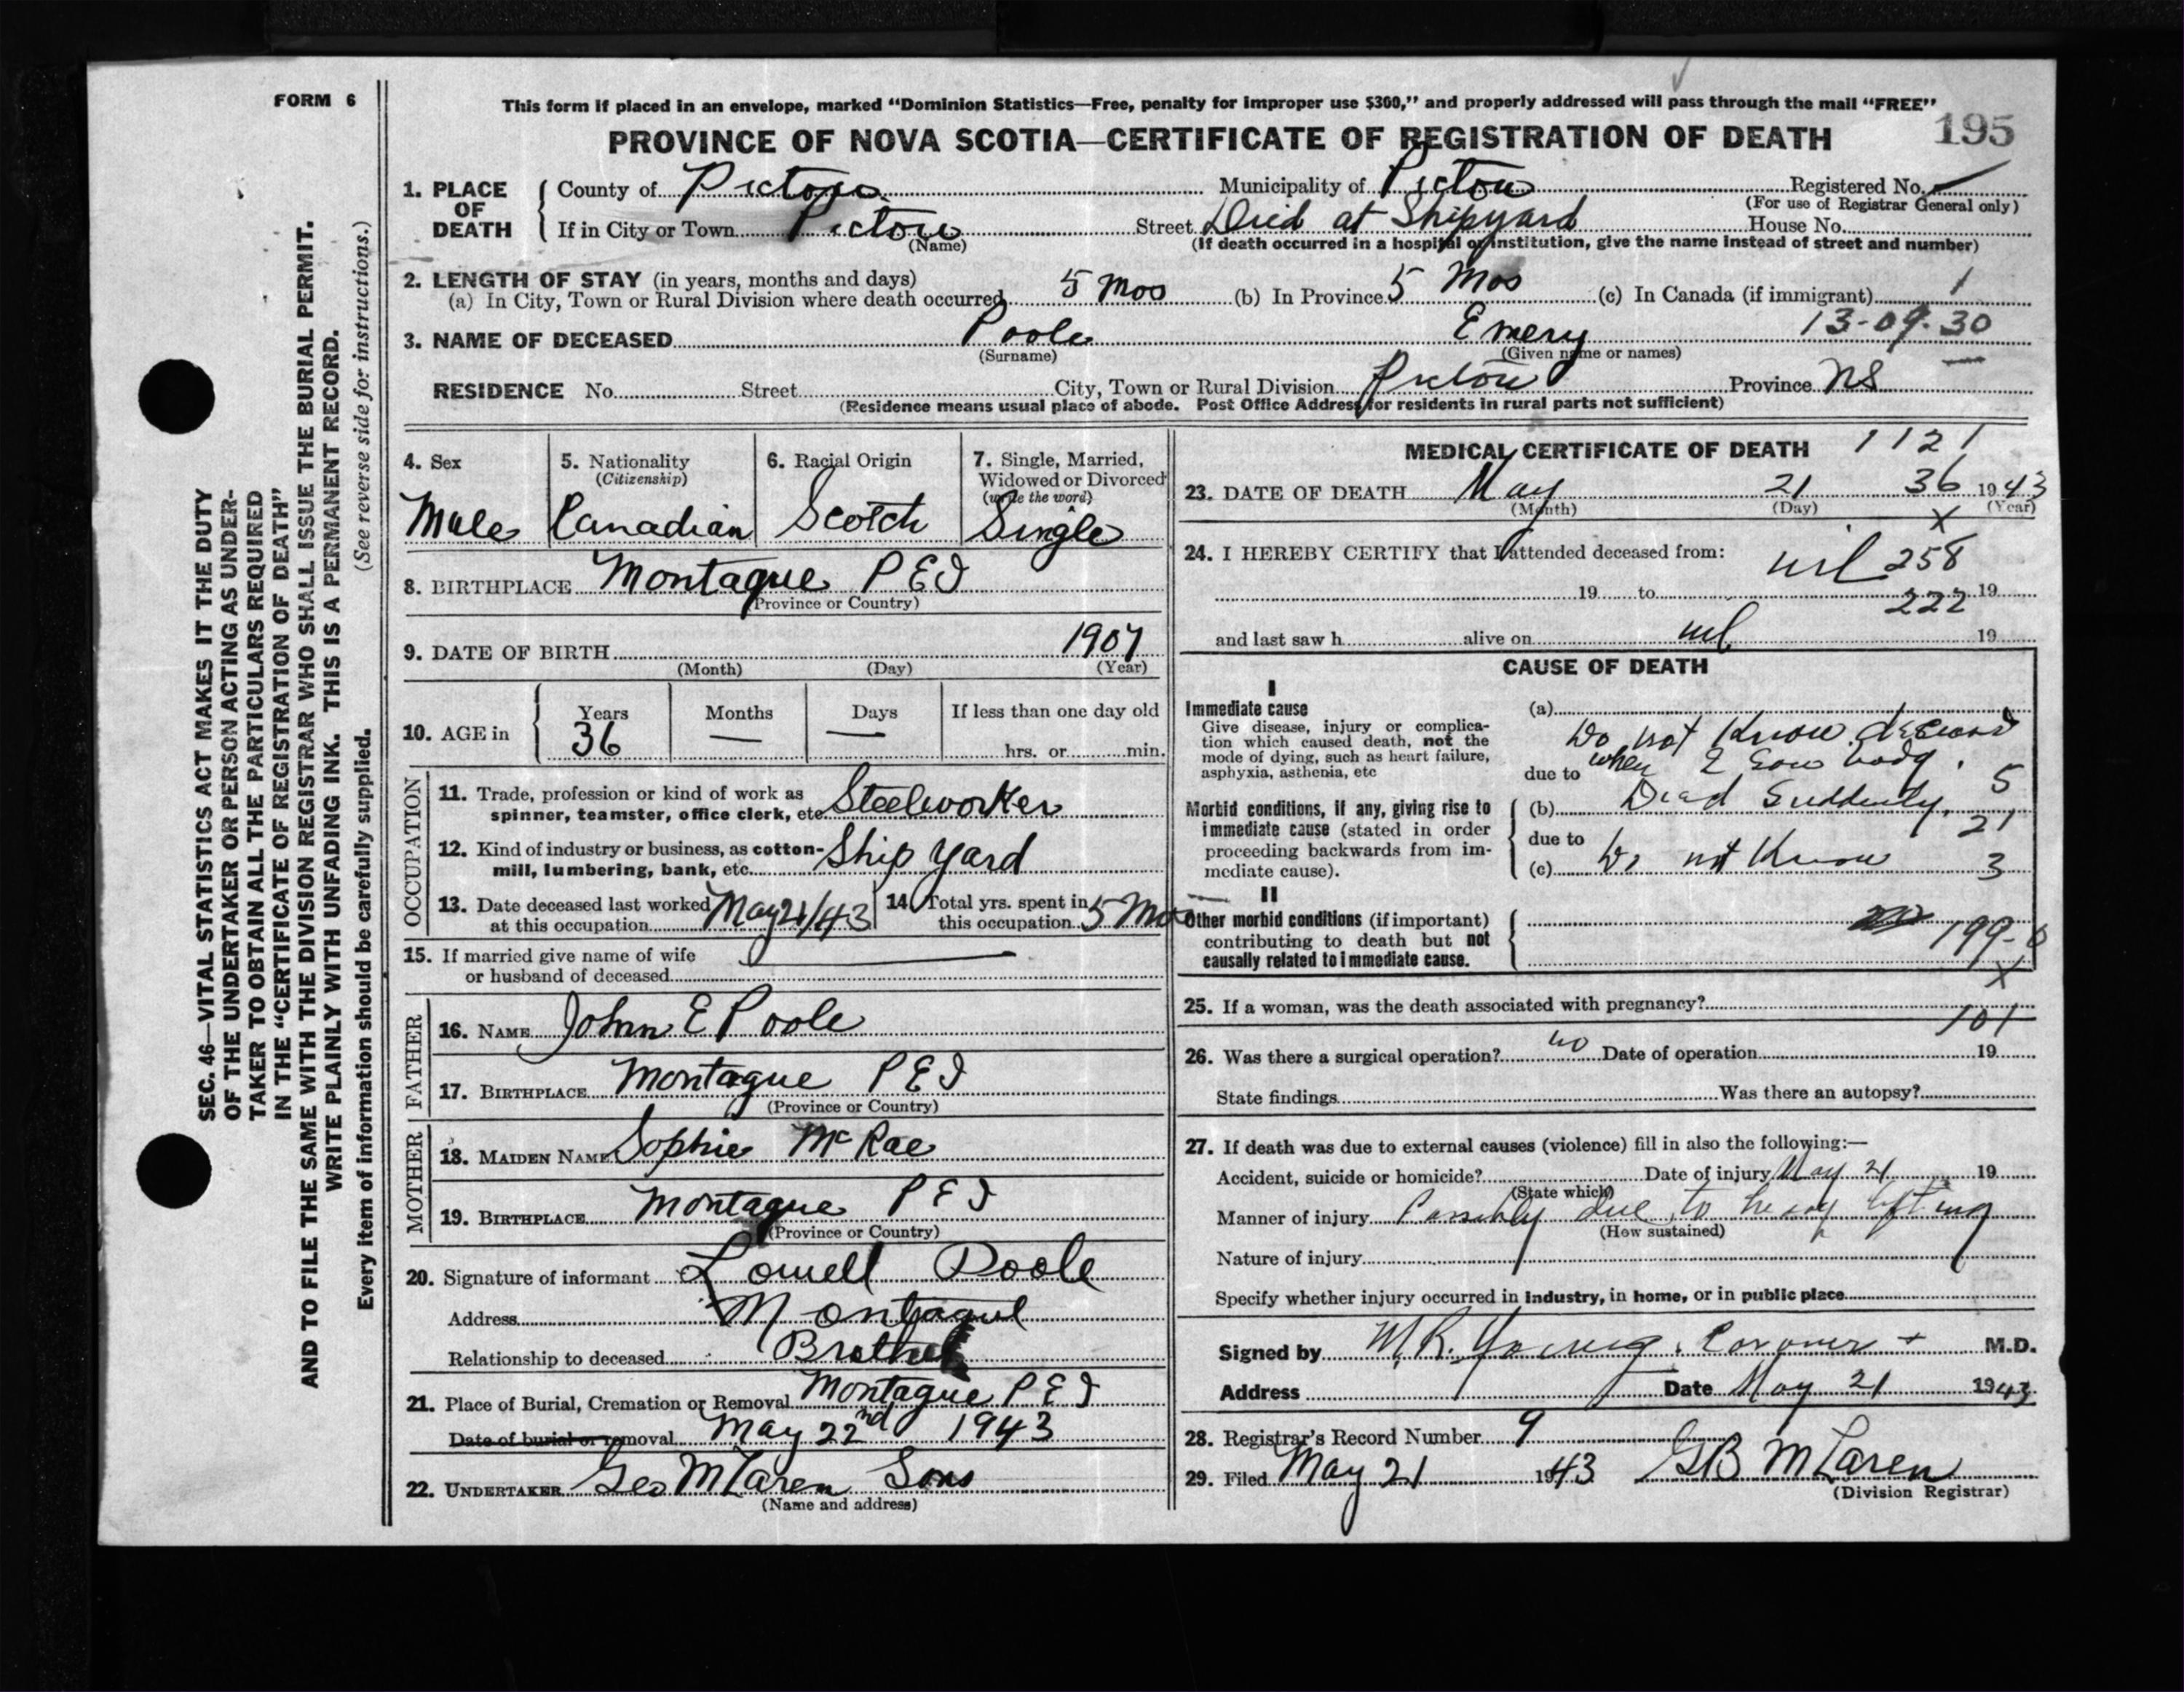 FORM 6
This form if placed in an envelope, marked "Dominion Statistics—Free, penalty for improper use $300," and properly addressed will pass through the mail "FREE"
PROVINCE OF NOVA SCOTIA—CERTIFICATE OF REGISTRATION OF DEATH 195
1. PLACE OF DEATH County of Pictou Municipality of Pictou Registered No.
(For use of Registrar General only)
If in City or Town Pictou Street Died at Shipyard House No.
(Name) (If death occurred in a hospital or institution, give the name instead of street and number)
2. LENGTH OF STAY (in years, months and days)
(a) In City, Town or Rural Division where death occurred 5 Mos (b) In Province 5 Mos (c) In Canada (if immigrant) 1
13-09-30
3. NAME OF DECEASED Poole Emery
(Surname) (Given name or names)
RESIDENCE No. Street City, Town or Rural Division Pictou Province NS
(Residence means usual place of abode. Post Office Address for residents in rural parts not sufficient)
4. Sex 5. Nationality (Citizenship) 6. Racial Origin 7. Single, Married, Widowed or Divorced (write the word)
Male Canadian Scotch Single
8. BIRTHPLACE Montague PEI
(Province or Country)
9. DATE OF BIRTH 1907
(Month) (Day) (Year)
10. AGE in Years Months Days If less than one day old
36 — — hrs. or min.
OCCUPATION
11. Trade, profession or kind of work as spinner, teamster, office clerk, etc. Steelworker
12. Kind of industry or business, as cotton-mill, lumbering, bank, etc. Ship Yard
13. Date deceased last worked at this occupation May 21/43 14. Total yrs. spent in this occupation 5 Mos
15. If married give name of wife or husband of deceased
FATHER
16. NAME John E Poole
17. BIRTHPLACE Montague PEI
(Province or Country)
MOTHER
18. MAIDEN NAME Sophie McRae
19. BIRTHPLACE Montague PEI
(Province or Country)
20. Signature of informant Lowell Poole
Address Montague
Relationship to deceased Brother
21. Place of Burial, Cremation or Removal Montague PEI
Date of burial or removal May 22nd 1943
22. UNDERTAKER Geo McLaren Sons
(Name and address)
MEDICAL CERTIFICATE OF DEATH 1121
23. DATE OF DEATH May 21 36 1943
(Month) (Day) (Year)
X
24. I HEREBY CERTIFY that I attended deceased from: nil 258
19 to 222 19
and last saw h alive on nil 19
CAUSE OF DEATH
I
Immediate cause
Give disease, injury or complication which caused death, not the mode of dying, such as heart failure, asphyxia, asthenia, etc
(a)
Do not know deceased
due to when I saw body. 5
Morbid conditions, if any, giving rise to immediate cause (stated in order proceeding backwards from immediate cause).
(b) Died Suddenly. 21
due to
(c) Do not know 3
II
Other morbid conditions (if important) contributing to death but not causally related to immediate cause.
199-0
X
25. If a woman, was the death associated with pregnancy?
101
26. Was there a surgical operation? no Date of operation 19
State findings Was there an autopsy?
27. If death was due to external causes (violence) fill in also the following:—
Accident, suicide or homicide? Date of injury May 21 19
(State which)
Manner of injury Possibly due to heavy lifting
(How sustained)
Nature of injury
Specify whether injury occurred in industry, in home, or in public place
Signed by M.R. Young. Coroner + M.D.
Address Date May 21 1943
28. Registrar's Record Number 9
29. Filed May 21 1943 GB McLaren
(Division Registrar)
SEC. 46—VITAL STATISTICS ACT MAKES IT THE DUTY
OF THE UNDERTAKER OR PERSON ACTING AS UNDER-
TAKER TO OBTAIN ALL THE PARTICULARS REQUIRED
IN THE "CERTIFICATE OF REGISTRATION OF DEATH"
AND TO FILE THE SAME WITH THE DIVISION REGISTRAR WHO SHALL ISSUE THE BURIAL PERMIT.
WRITE PLAINLY WITH UNFADING INK. THIS IS A PERMANENT RECORD.
Every item of information should be carefully supplied. (See reverse side for instructions.)